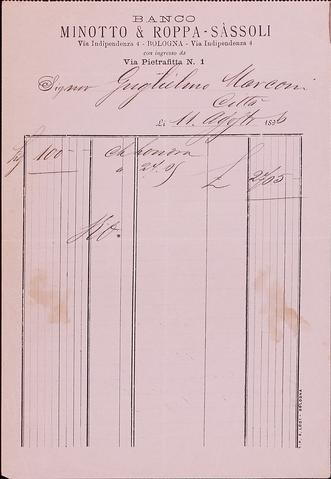 BANCO
MINOTTO & ROPPA-SÀSSOLI
Via Indipendenza 4 - BOLOGNA - Via Indipendenza 4
con ingresso da
Via Pietrafitta N. 1
Signor Guglielmo Marconi
Città
Li 11 Agosto 1896
100 - Ch Londra
a 27.05 £ 2705 -